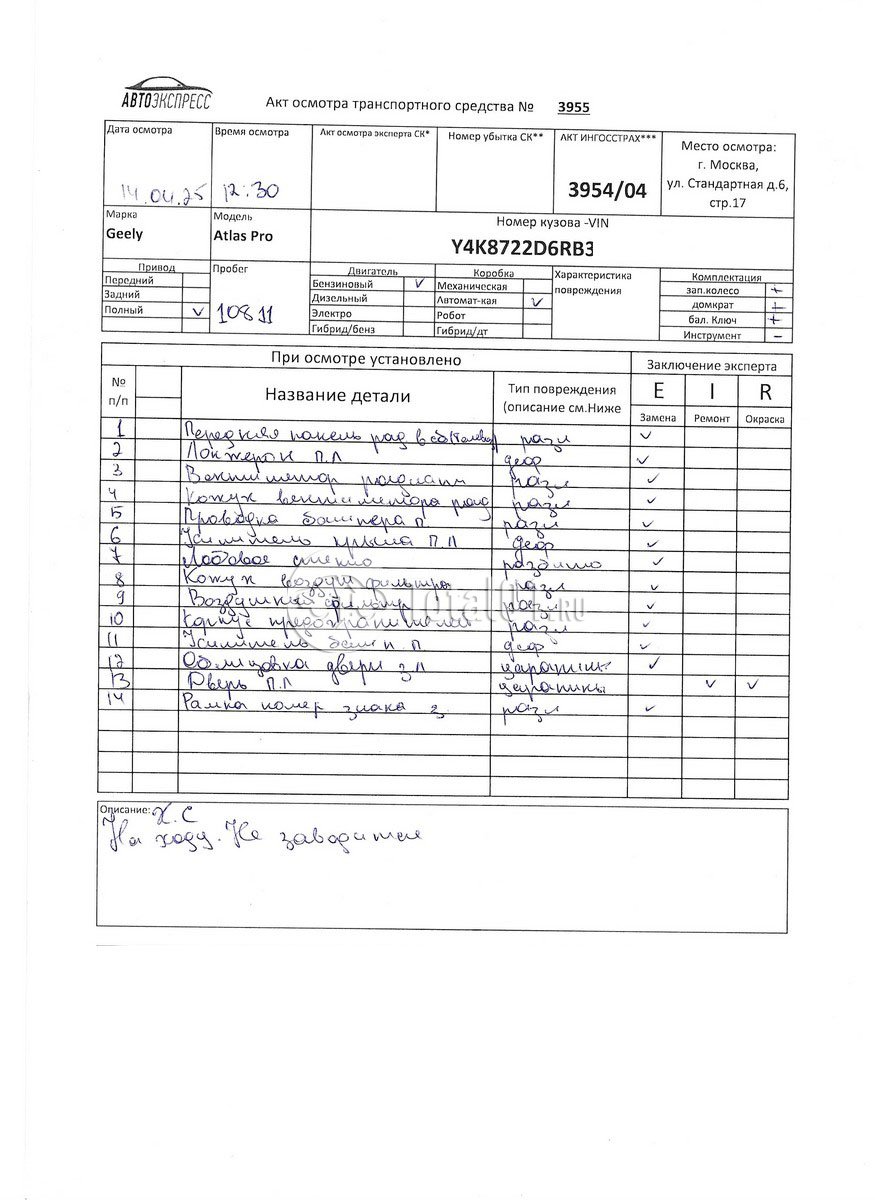 АВТОЭКСПРЕСС
Акт осмотра транспортного средства № 3955
Дата осмотра Время осмотра Акт осмотра эксперта СК* Номер убытка СК** АКТ ИНГОССТРАХ*** Место осмотра:
г. Москва,
ул. Стандартная д.6,
стр.17
14.04.25 12:30 3954/04
Марка Модель Номер кузова -VIN
Geely Atlas Pro Y4K8722D6RB3
Привод Пробег Двигатель Коробка Характеристика повреждения Комплектация
Передний Бензиновый V Механическая зап.колесо +
Задний Дизельный Автомат-кая V домкрат +
Полный V 10811 Электро Робот бал. Ключ +
Гибрид/бенз Гибрид/дт Инструмент -
При осмотре установлено Заключение эксперта
№ п/п Название детали Тип повреждения (описание см.Ниже E I R
Замена Ремонт Окраска
1 Передняя панель рад в сб (телевиз) разл V
2 Лонжерон П.Л деф V
3 Вентилятор радиат разл V
4 Кожух вентилятора рад разл V
5 Проводка бампера п. разл V
6 Усилитель крыла П.Л деф V
7 Лобовое стекло разбито V
8 Кожух воздуш фильтра разл V
9 Воздушный фильтр разл V
10 Корпус предохранителей разл V
11 Усилитель бамп П деф V
12 Облицовка двери З Л царапины V
13 Дверь П.Л царапины V V
14 Рамка номер знака з разл V
Описание: Х.С
На ходу. Не заводится
TOTAL01.RU